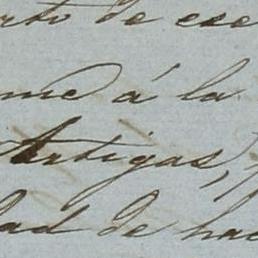 rto de ese
me á la
Artigas,
dad de hac